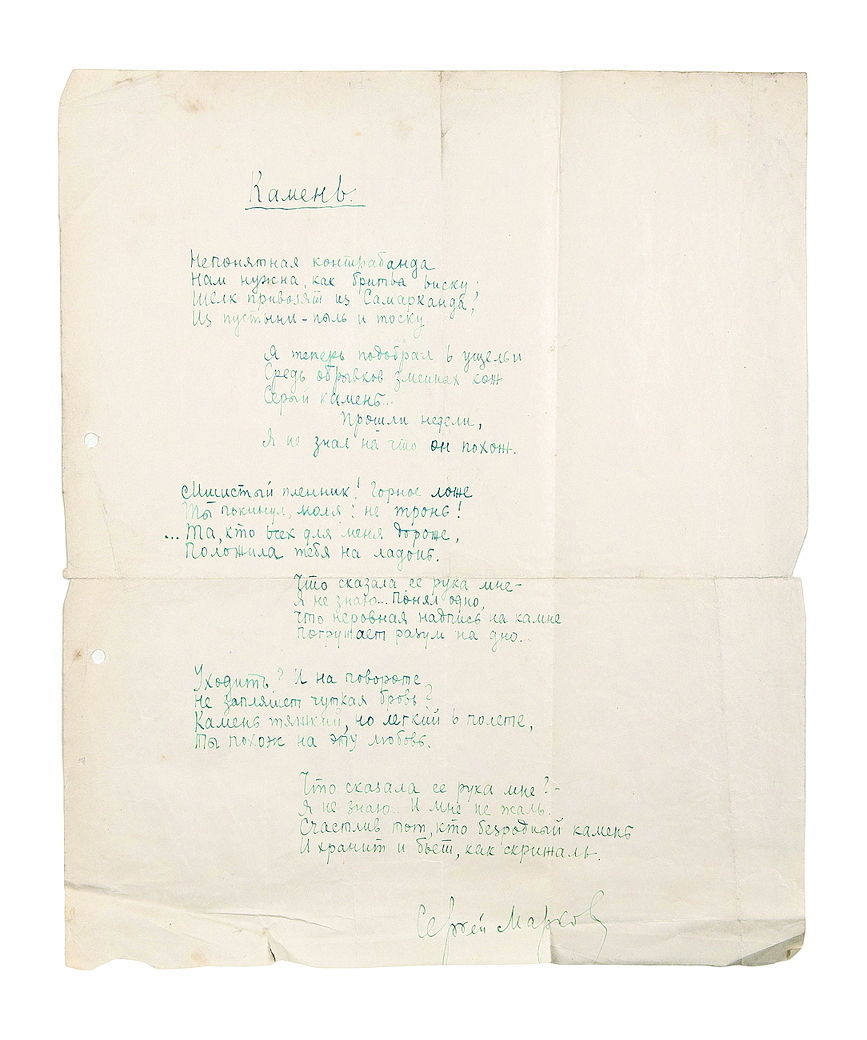 Камень.
Непонятная контрабанда
Нам нужна, как бритва виску;
Шелк привозят из Самарканда,
Из пустыни – пыль и тоску
Я теперь подобрал в ущельи
Средь обрывков змеиных кож
Серый камень...
Прошли недели,
Я не знал на что он похож.
Мшистый пленник! Горное ложе
Ты покинул, моля: не тронь!
...Та, кто всех для меня дороже,
Положила тебя на ладонь.
Что сказала ее рука мне –
Я не знаю... Понял одно,
Что неровная надпись на камне
Погружает разум на дно..
Уходить? И на повороте
Не запляшет чуткая бровь?
Камень тяжкий, но легкий в полете,
Ты похож на эту любовь.
Что сказала ее рука мне? –
Я не знаю.. И мне не жаль.
Счастлив тот, кто безродный камень
И хранит и бьет, как скрижаль.
Сергей Марков